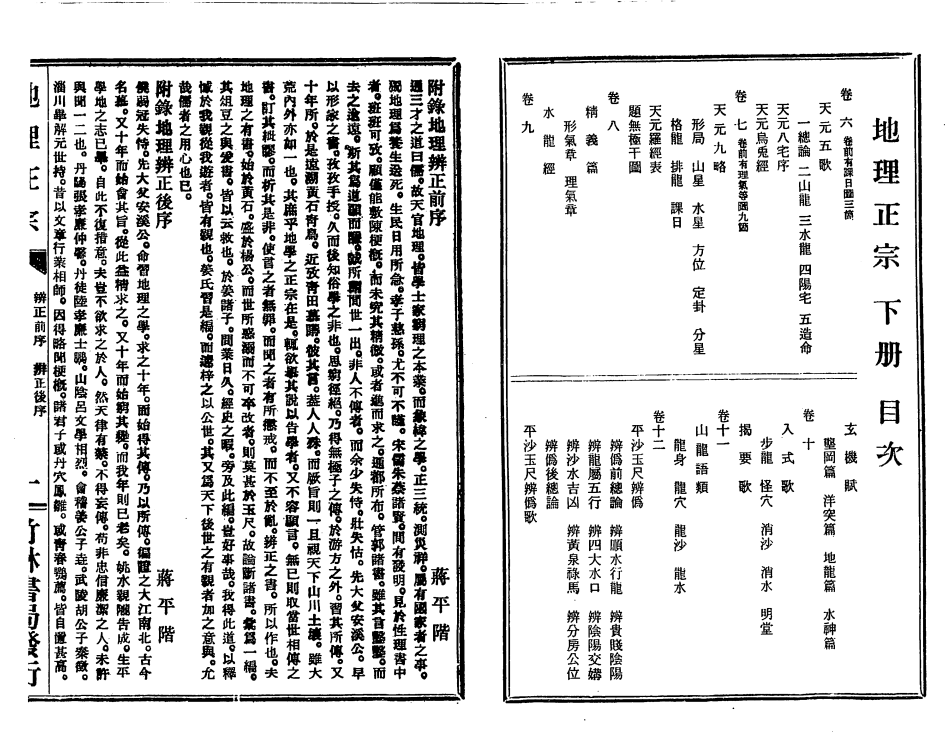 地理正宗 下册 目次
卷 六 卷前有課日圖三篇
天元五歌
一總論 二山龍 三水龍 四陽宅 五造命
天元八宅序
天元烏兎經
卷 七 卷前有理氣等圖九篇
天元九略
形局 山星 水星 方位 定卦 分星
格龍 排龍 課日
天元羅經表
題無極干圖
卷 八
精義篇
形氣章 理氣章
水龍經
卷 九
玄機賦
卷 十
壟岡篇 洋突篇 地龍篇 水神篇
入式歌
步龍 怪穴 消沙 消水 明堂
揭要歌
卷十一
山龍語類
龍身 龍穴 龍沙 龍水
卷十二
平沙玉尺辨僞
辨僞前總論 辨順水行龍 辨貴賤陰陽
辨龍屬五行 辨四大水口 辨陰陽交媾
辨沙水吉凶 辨黃泉祿馬 辨分房公位
辨僞後總論
平沙玉尺辨僞歌
附錄地理辨正前序 蔣平階
通三才之道曰儒。故天官地理。皆學士家窮理之本業。而象緯之學。正三統。測災祥。屬有國家者之事。
獨地理爲養生送死。生民日用所急。孝子慈孫。尤不可不謹。宋儒朱蔡諸賢。間有發明。見於性理書中
者。班班可攷。顧僅能敷陳梗槪。而未究其精微。或者進而求之。通都所布。管郭諸書。雖其言鑿鑿。而
去之逾遠。斯其爲道顯而隱。誠所謂間世一出。非人不傳者。而余少失恃。壯失怙。先大父安溪公。早
以形家之書。孜孜手授。久而後知俗學之非也。思窮徑絕。乃得無極子之傳。於游方之外。習其所傳。又
十年所。於是遠溯黃石靑烏。近攷靑田幕講。彼其言。葢人人殊。而厥旨則一。且視天下山川土壤。雖大
荒內外亦如一也。其庶乎地學之正宗在是。輒欲舉其說以告學者。又不容顯言。無已則取當世相傳之
書。訂其紕繆。而析其是非。使言之者無罪。而聞之者有所懲戒。而不至於亂。辨正之書。所以作也。夫
地理之有書。始於黃石。盛於楊公。而世所惑溺而不可卒改者。則莫甚於玉尺。故論斷諸書。彙爲一編。
其俎豆之與愛書。皆以云救也。於姜諸子。問業日久。經史之暇。旁及此編。豈好事哉。我得此道。以釋
憾於我親。從我遊者。皆有親也。姜氏習是編。而遽梓之以公世。其又爲天下後世之有親者加之意與。允
哉儒者之用心也已。
附錄地理辨正後序 蔣平階
僕弱冠失恃。先大父安溪公。命習地理之學。求之十年。而始得其傳。乃以所傳。徧證之大江南北。古今
名墓。又十年而始會其旨。從此益精求之。又十年而始窮其變。而我年則已老矣。姚水親隴告成。生平
學地之志已畢。自此不復措意。夫豈不欲求之於人。然天律有禁。不得妄傳。苟非忠信廉潔之人。未許
與聞一二也。丹陽張孝廉仲馨。丹徒陸孝廉士鵷。山陰呂文學相烈。會稽姜公子垚。武陵胡公子泰徵。
淄川畢解元世持。昔以文章行業相師。因得略聞梗槪。諸君子或丹穴鳳雛。或靑春鶚薦。皆自置甚高。
地理正宗 辨正前序 辨正後序 一 竹林書局發行